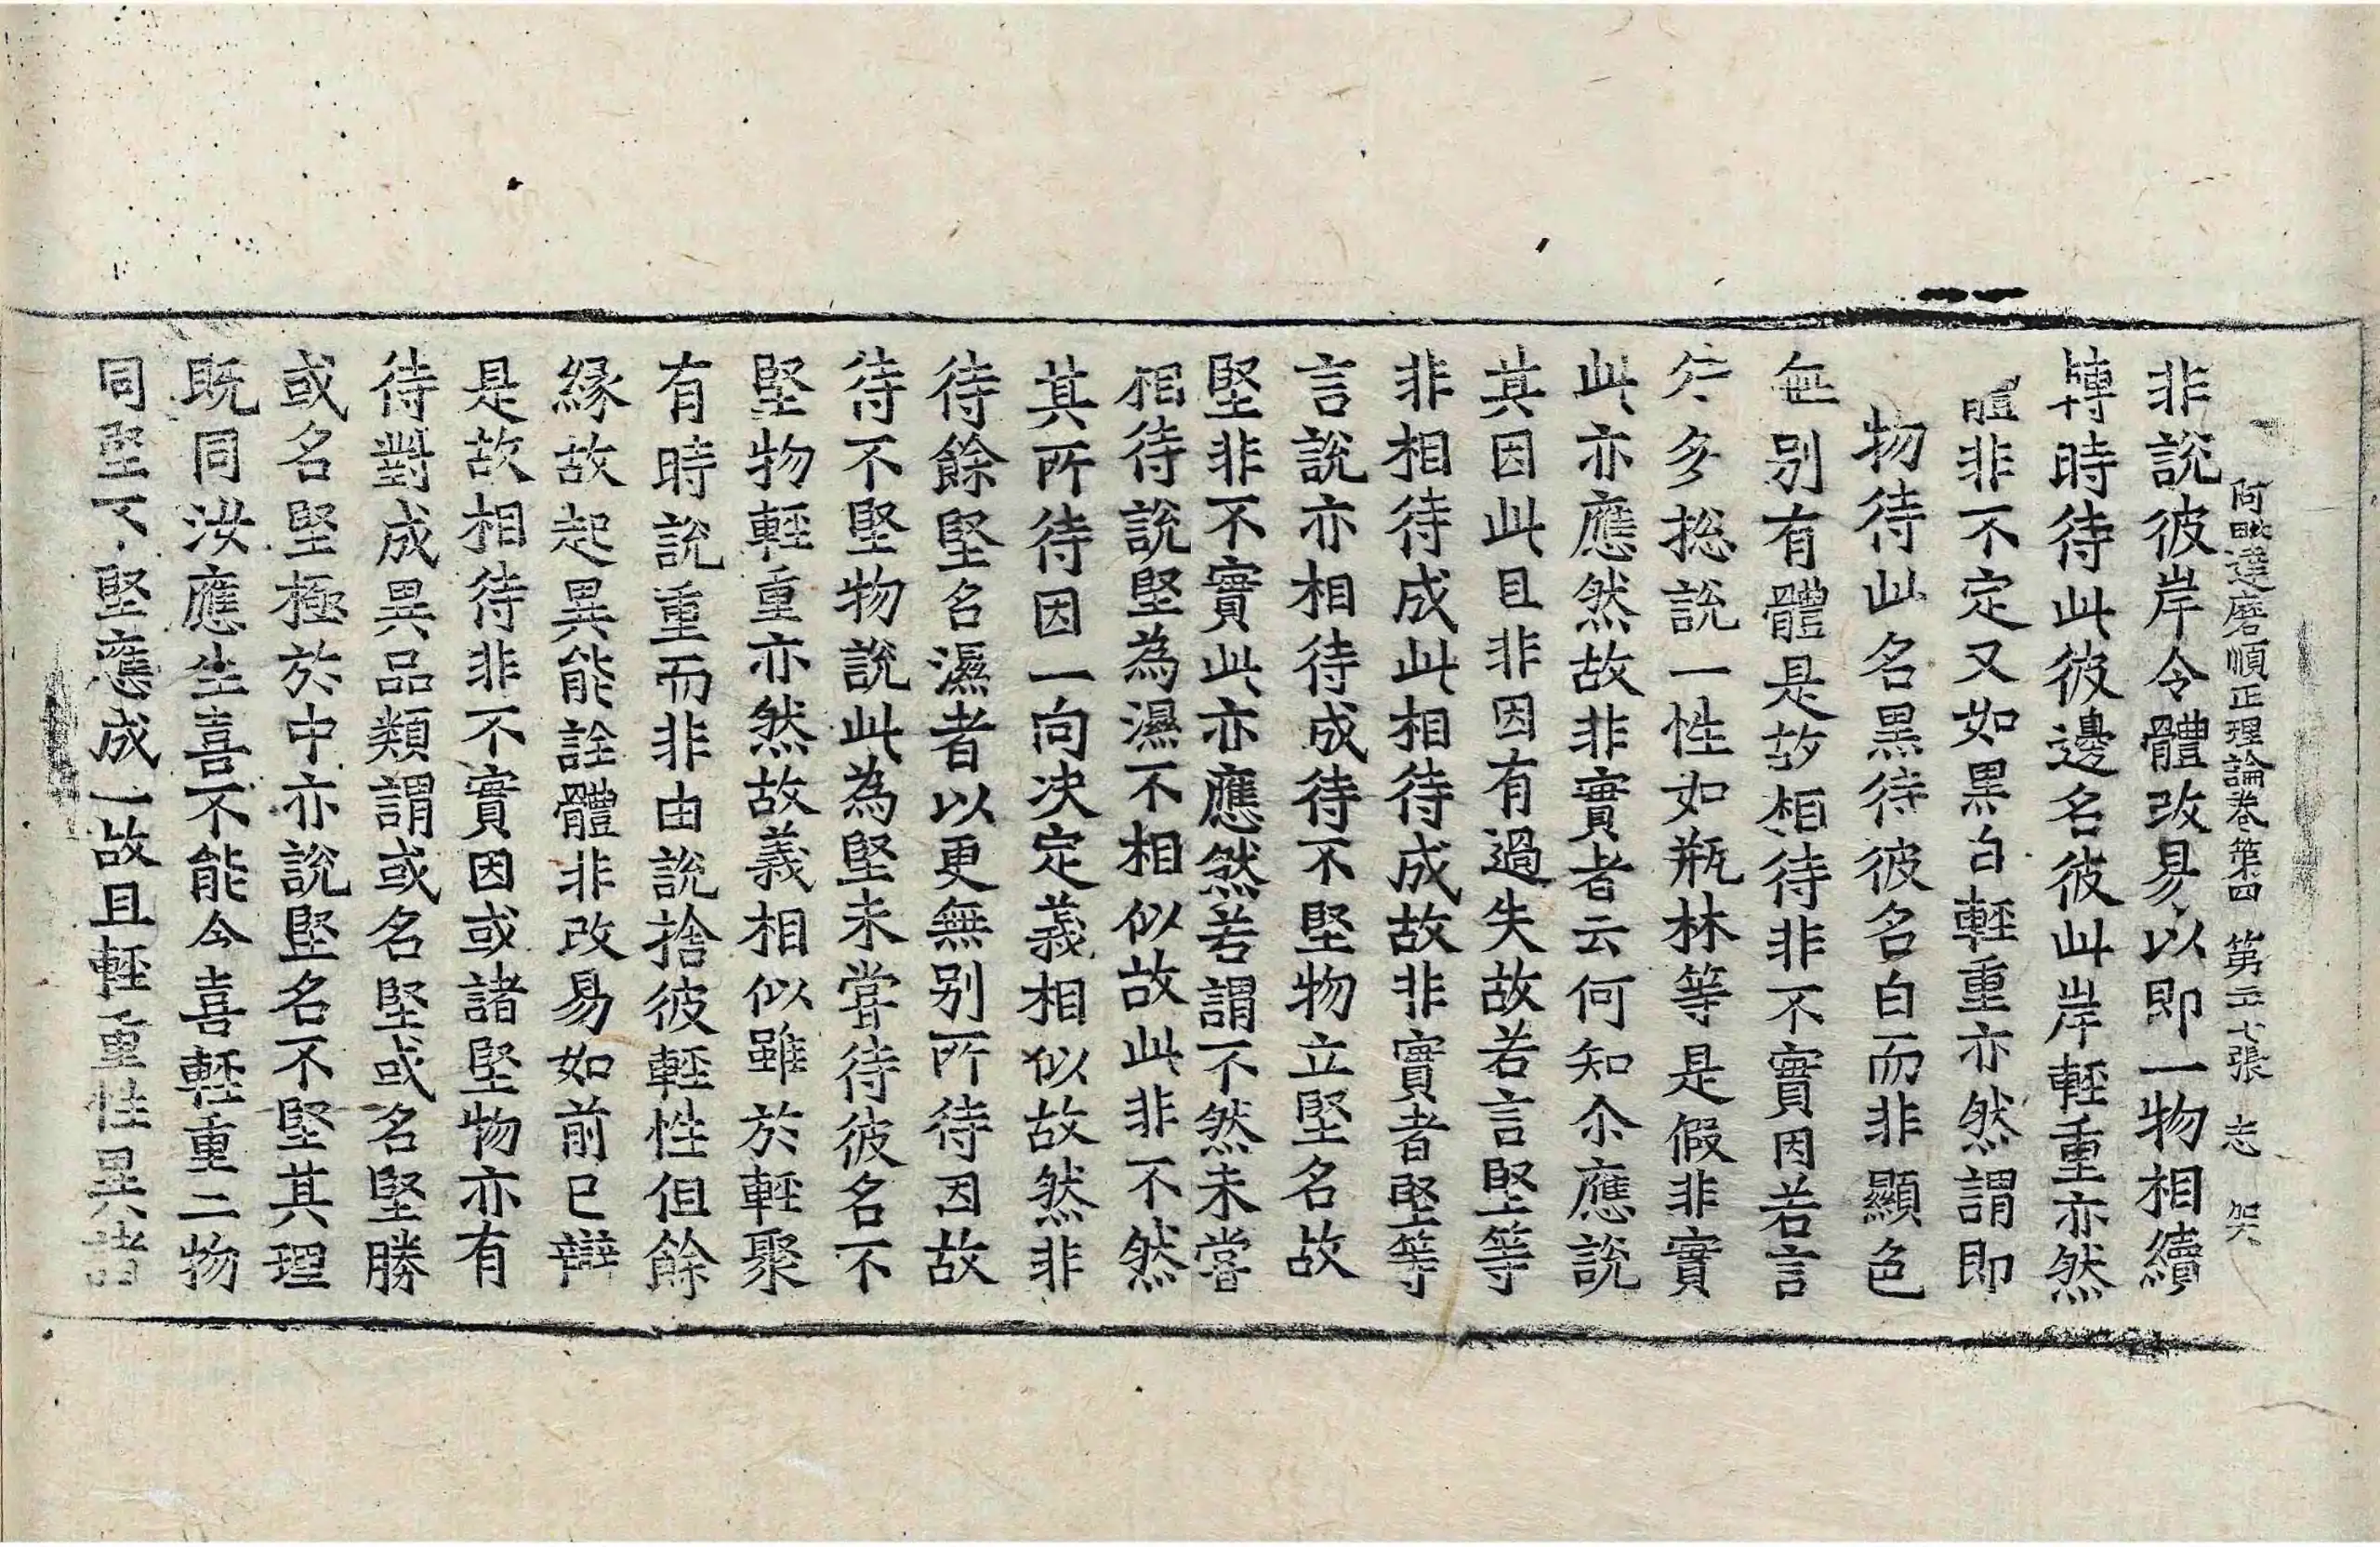 阿毗達磨順正理論卷第四 第二七張 志
非說彼岸令體改易以即一物相續
轉時待此彼邊名彼此岸輕重亦然
體非不定又如黑白輕重亦然謂即
物待此名黑待彼名白而非顯色
無別有體是故相待非不實因若言
多捴說一性如瓶林等是假非實
此亦應然故非實者云何知尒應說
其因此且非因有過失故若言堅等
非相待成此相待成故非實者堅等
言說亦相待成待不堅物立堅名故
堅非不實此亦應然若謂不然未嘗
相待說堅為濕不相似故此非不然
其所待因一向決定義相似故然非
待餘堅名濕者以更無別所待因故
待不堅物說此為堅未嘗待彼名不
堅物輕重亦然故義相似雖於輕聚
有時說重而非由說捨彼輕性但餘
緣故起異能詮體非改易如前已辯
是故相待非不實因或諸堅物亦有
待對成異品類謂或名堅或名堅勝
或名堅極於中亦說堅名不堅其理
既同汝應生喜不能令喜輕重二物
同堅不堅應成一故且輕重性異諸